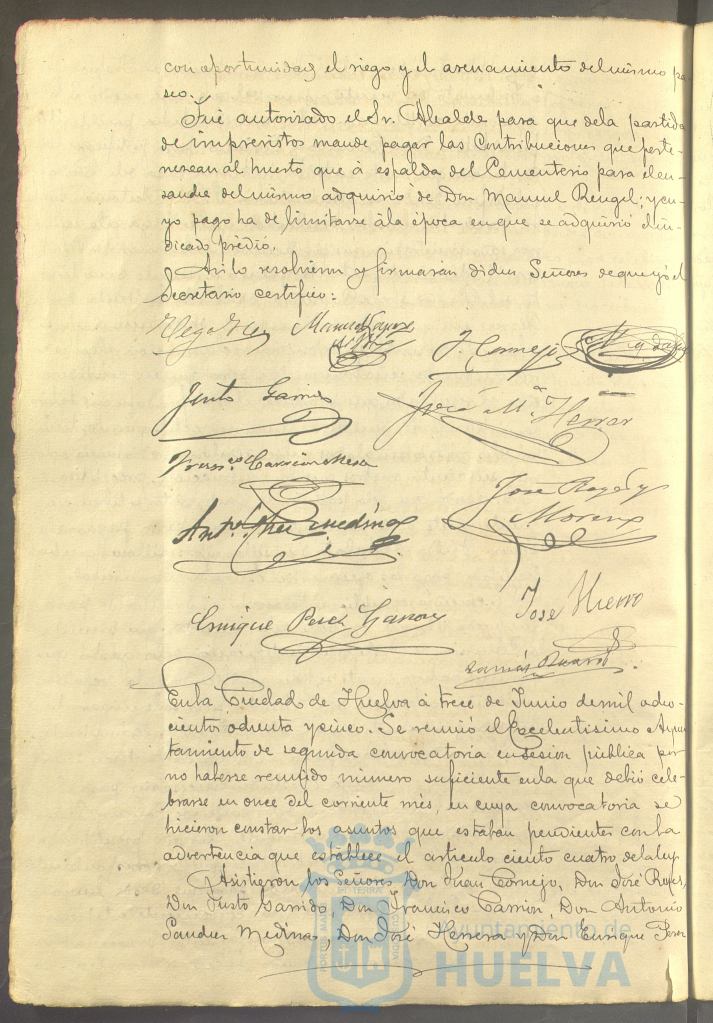 con oportunidad el riego y el arenamiento del mismo pa-
seo.
Fué autorizado el Sr. Alcalde para que de la partida
de imprevistos mande pagar las Contribuciones que perte-
nezcan al huerto que á espalda del Cementerio para el en-
sanche del mismo adquirió de Don Manuel Rengel; y cu-
yo pago ha de limitarse á la época en que se adquirió el in-
dicado predio.
Asi lo resolvieron y firmarán dichos Señores de que yo el
Secretario certifico:
J. Cornejo
Justo Garrido
José Ma. Herrer
Franco. Carrión Mesa
José Roge y
Moreno
Anto. Schez
Enrique Perez
José Hierro
En la Ciudad de Huelva á trece de Junio de mil ocho-
cientos ochenta y cinco. Se reunió el Excelentisimo Ayun-
tamiento de segunda convocatoria en sesion pública por
no haberse reunido número suficiente en la que debió cele-
brarse en once del corriente més, en cuya convocatoria se
hicieron constar los asuntos que estaban pendientes con la
advertencia que establece el artículo ciento cuatro de la ley.
Asistieron los Señores Don Juan Cornejo, Don José Roges,
Don Justo Garrido, Don Francisco Carrion, Don Antonio
Sanchez Medina, Don José Herrera y Don Enrique Perez
Ayuntamiento de
HUELVA